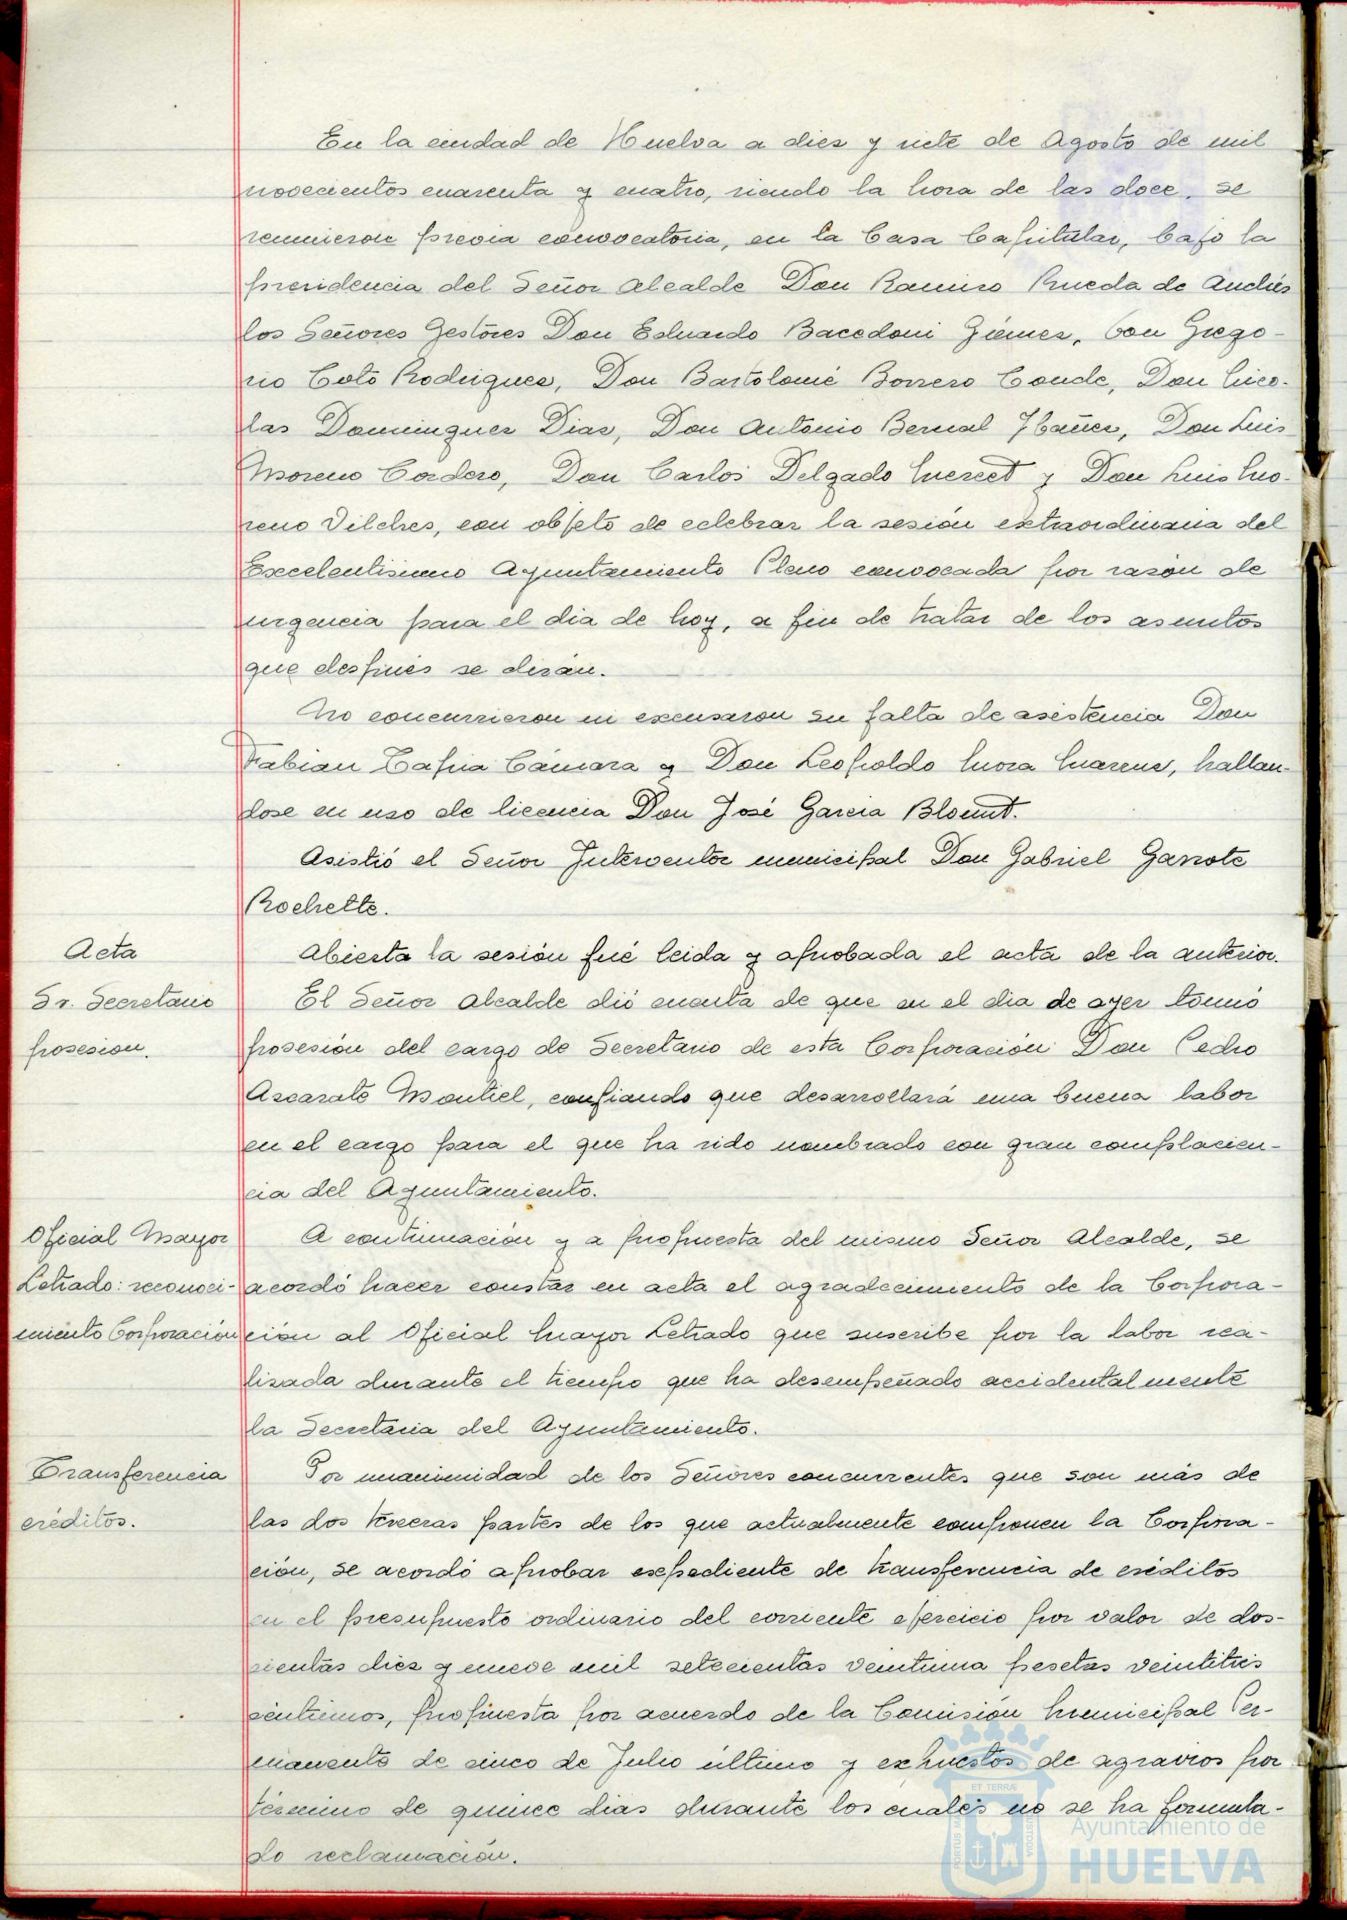 En la ciudad de Huelva a diez y siete de Agosto de mil
novecientos cuarenta y cuatro, siendo la hora de las doce, se
reunieron previa convocatoria, en la Casa Capitular, bajo la
presidencia del Señor Alcalde Don Ramiro Rueda de Andrés
los Señores Gestores Don Eduardo Bacedoni Giémez, Don Grego-
rio Coto Rodriguez, Don Bartolomé Borrero Conde, Don Nico-
las Dominguez Diaz, Don Antonio Bernal Ibañez, Don Luis
Moreno Cordero, Don Carlos Delgado Mercet y Don Luis Mo-
reno Vilches, con objeto de celebrar la sesión extraordinaria del
Excelentisimo Ayuntamiento Pleno convocada por razón de
urgencia para el dia de hoy, a fin de tratar de los asuntos
que después se dirán.
No concurrieron ni excusaron su falta de asistencia Don
Fabian Tapia Cámara y Don Leopoldo Mora, hallan-
dose en uso de licencia Don José Garcia Blount.
Asistió el Señor Interventor municipal Don Gabriel Garrote
Rochette.
Acta
Abierta la sesión fué leida y aprobada el acta de la anterior.
Sr. Secretario
posesion.
El Señor Alcalde dió cuenta de que en el dia de ayer tomó
posesión del cargo de Secretario de esta Corporación Don Pedro
Azcarate Montiel, confiando que desarrollará una buena labor
en el cargo para el que ha sido nombrado con gran complacien-
cia del Ayuntamiento.
Oficial Mayor
Letrado: reconoci-
miento Corporación
A continuación y a propuesta del mismo Señor Alcalde, se
acordó hacer constar en acta el agradecimiento de la Corpora-
ción al Oficial Mayor Letrado que suscribe por la labor rea-
lizada durante el tiempo que ha desempeñado accidentalmente
la Secretaria del Ayuntamiento.
Transferencia
créditos.
Por unanimidad de los Señores concurrentes que son más de
las dos terceras partes de los que actualmente componen la Corpora-
ción, se acordó aprobar expediente de transferencia de créditos
en el presupuesto ordinario del corriente ejercicio por valor de dos-
cientas diez y nueve mil setecientas veintiuna pesetas veintitres
céntimos, propuesta por acuerdo de la Comisión Municipal Per-
manente de cinco de Julio último y expuestos de agravios por
término de quince dias durante los cuales no se ha formula-
do reclamación.
ET TERRÆ
PORTUS MARIS
CUSTODIA
Ayuntamiento de
HUELVA